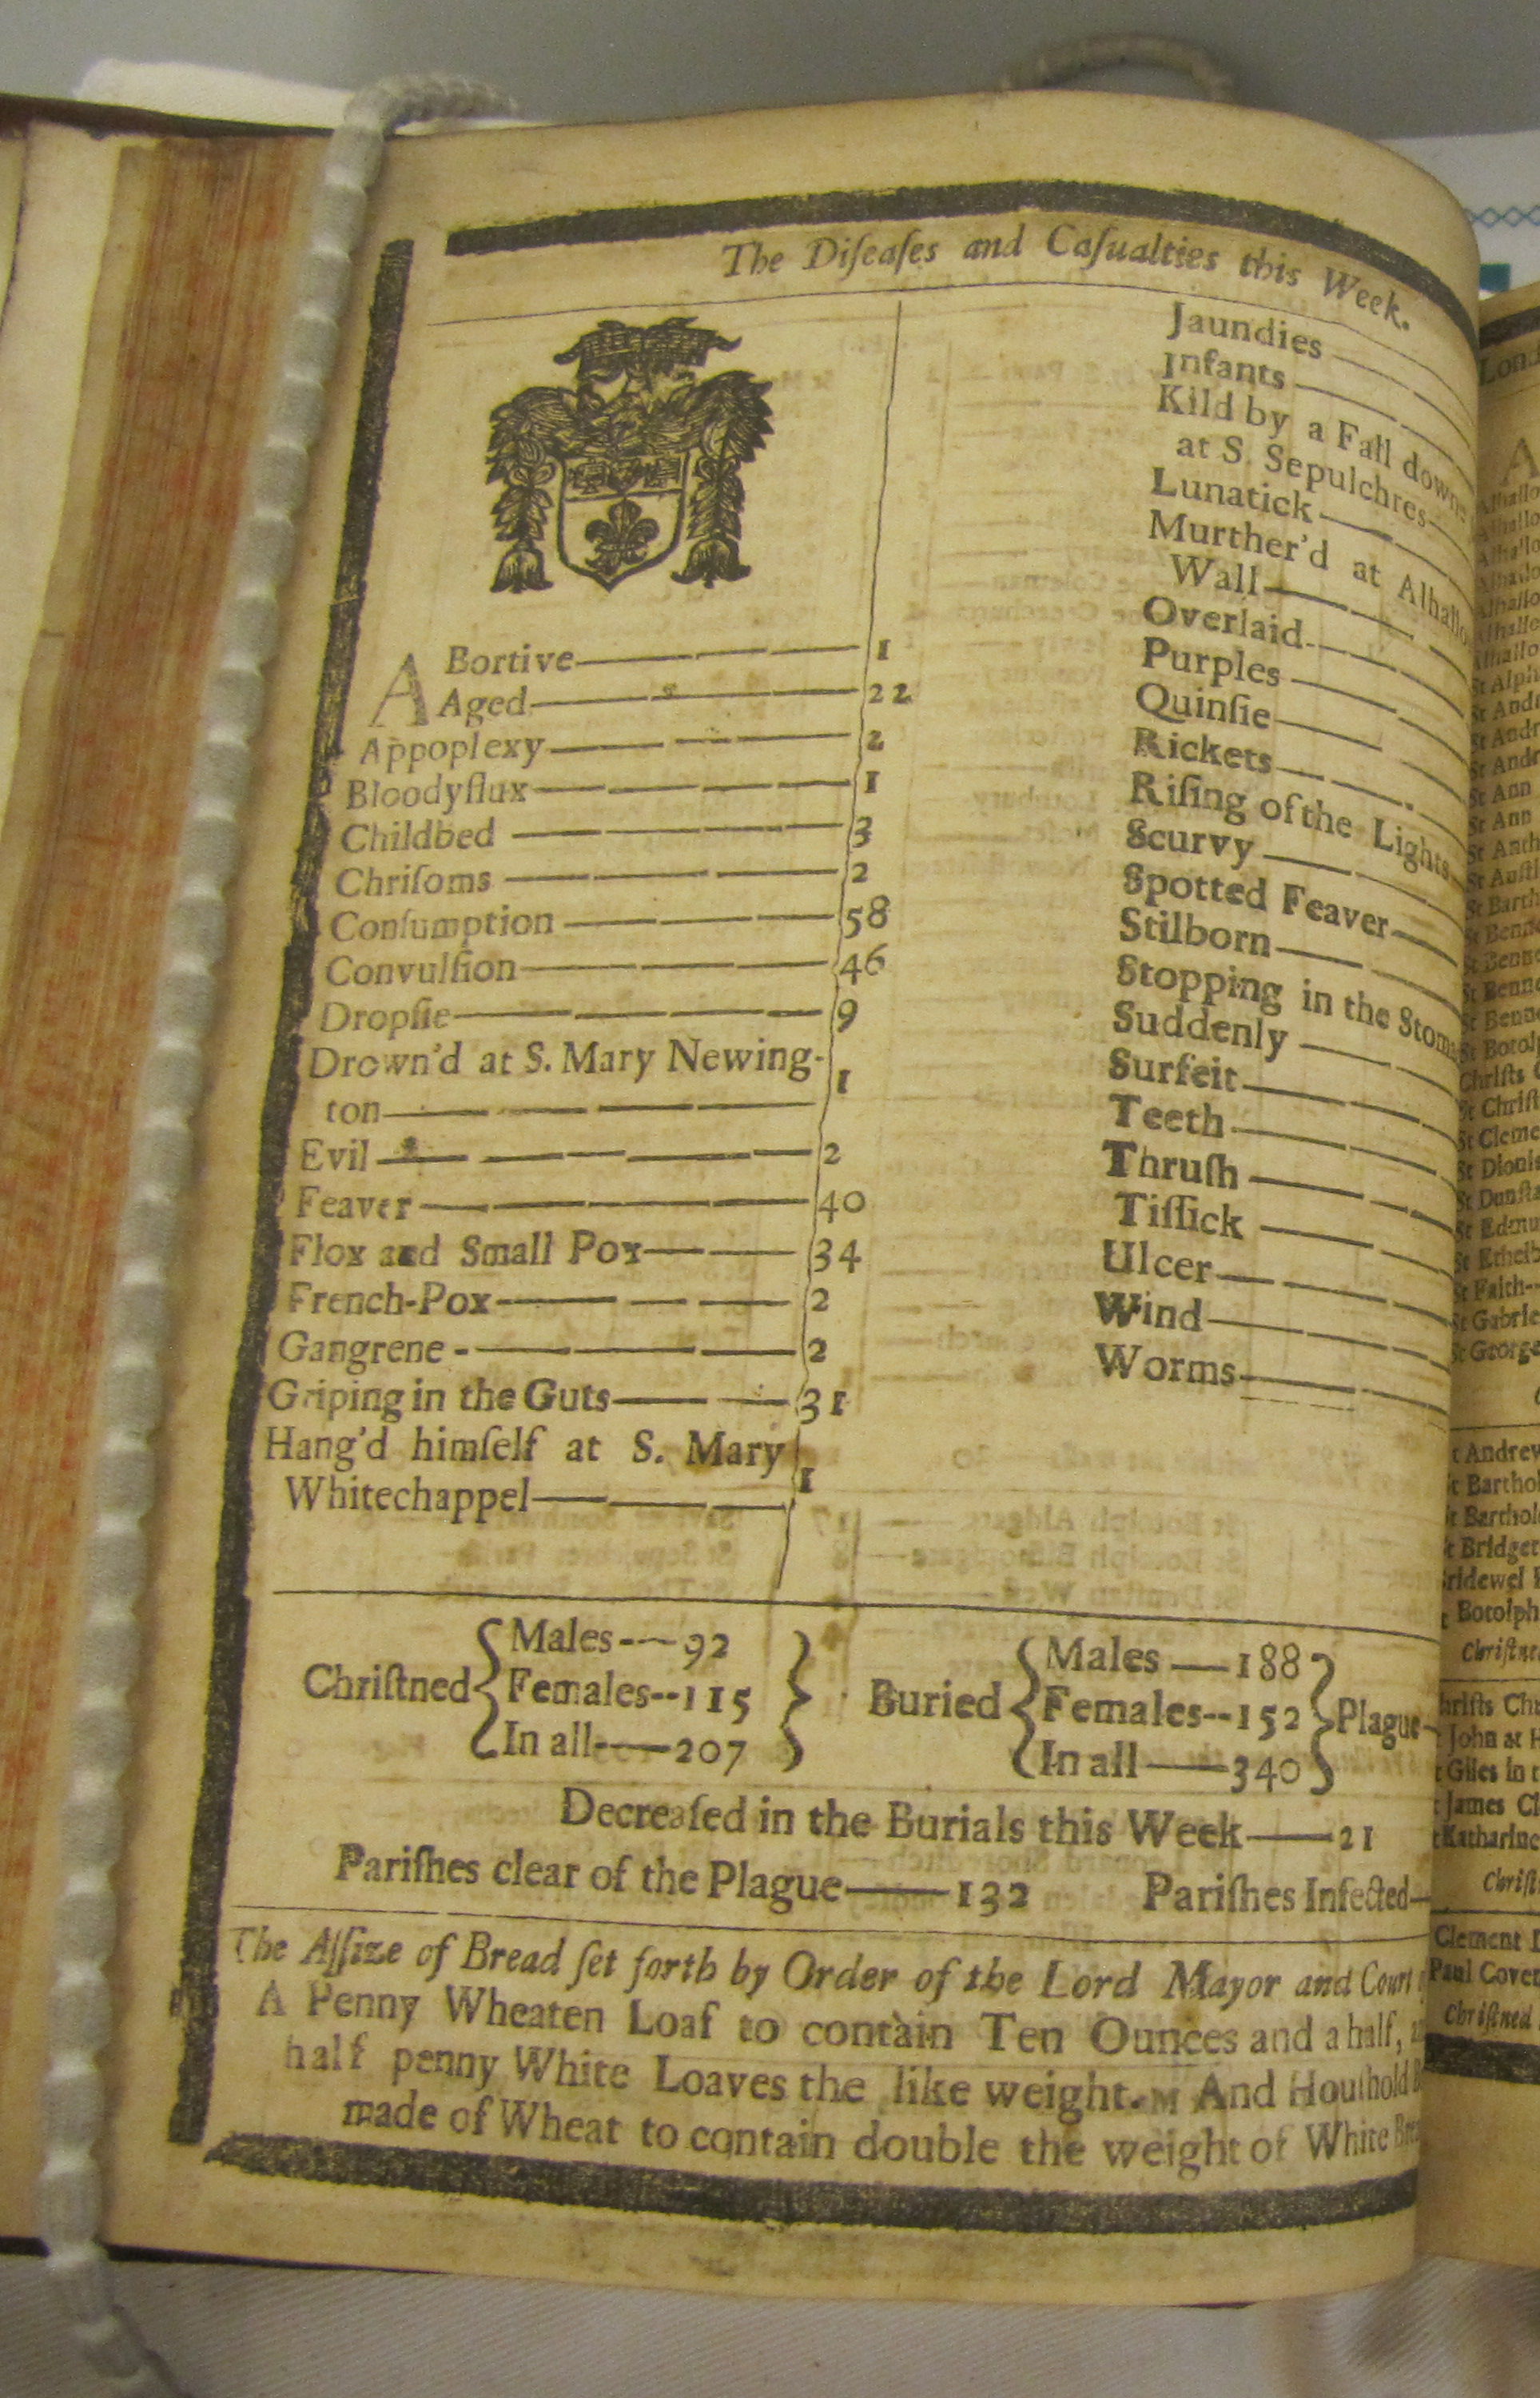 The Diſeaſes and Caſualties this Week.
ABortive 1
Aged 22
Appoplexy 2
Bloodyflux 1
Childbed 3
Chriſoms 2
Conſumption 58
Convulſion 46
Dropſie 9
Drown'd at S. Mary Newing-
ton 1
Evil 2
Feaver 40
Flox and Small Pox 34
French-Pox 2
Gangrene 2
Griping in the Guts 31
Hang'd himſelf at S. Mary
Whitechappel 1
Jaundies
Infants
Kild by a Fall downe
at S. Sepulchres
Lunatick
Murther'd at Alhallo
Wall
Overlaid
Purples
Quinſie
Rickets
Riſing of the Lights
Scurvy
Spotted Feaver
Stilborn
Stopping in the Stom
Suddenly
Surfeit
Teeth
Thruſh
Tiſſick
Ulcer
Wind
Worms
Chriſtned
Males 92
Females 115
In all 207
Buried
Males 188
Females 152
In all 340
Plague
Decreaſed in the Burials this Week 21
Pariſhes clear of the Plague 132 Pariſhes Infected
The Aſſize of Bread ſet forth by Order of the Lord Mayor and Court
A Penny Wheaten Loaf to contain Ten Ounces and a half,
half penny White Loaves the like weight. And Houſhold
made of Wheat to contain double the weight of White
Lond
A
Alhallo
Alhallo
Alhallo
Alhallo
Alhallo
Alhallo
Alhallo
St Alph
St Andr
St Andr
St Andr
St Ann
St Ann
St Anth
St Auſti
St Barth
St Benne
St Benne
St Benne
St Benne
St Botolp
Chriſts C
St Chriſt
St Cleme
St Dionis
St Dunſta
St Edmu
St Ethelb
St Faith
St Gabrie
St George
t Andrew
t Bartho
t Barthol
t Bridget
ridewel
Botolph
Chriſtne
hriſts Chu
John at H
t Giles in t
James Cl
t Katharine
Chriſt
Clement D
Paul Cover
Chriſtned